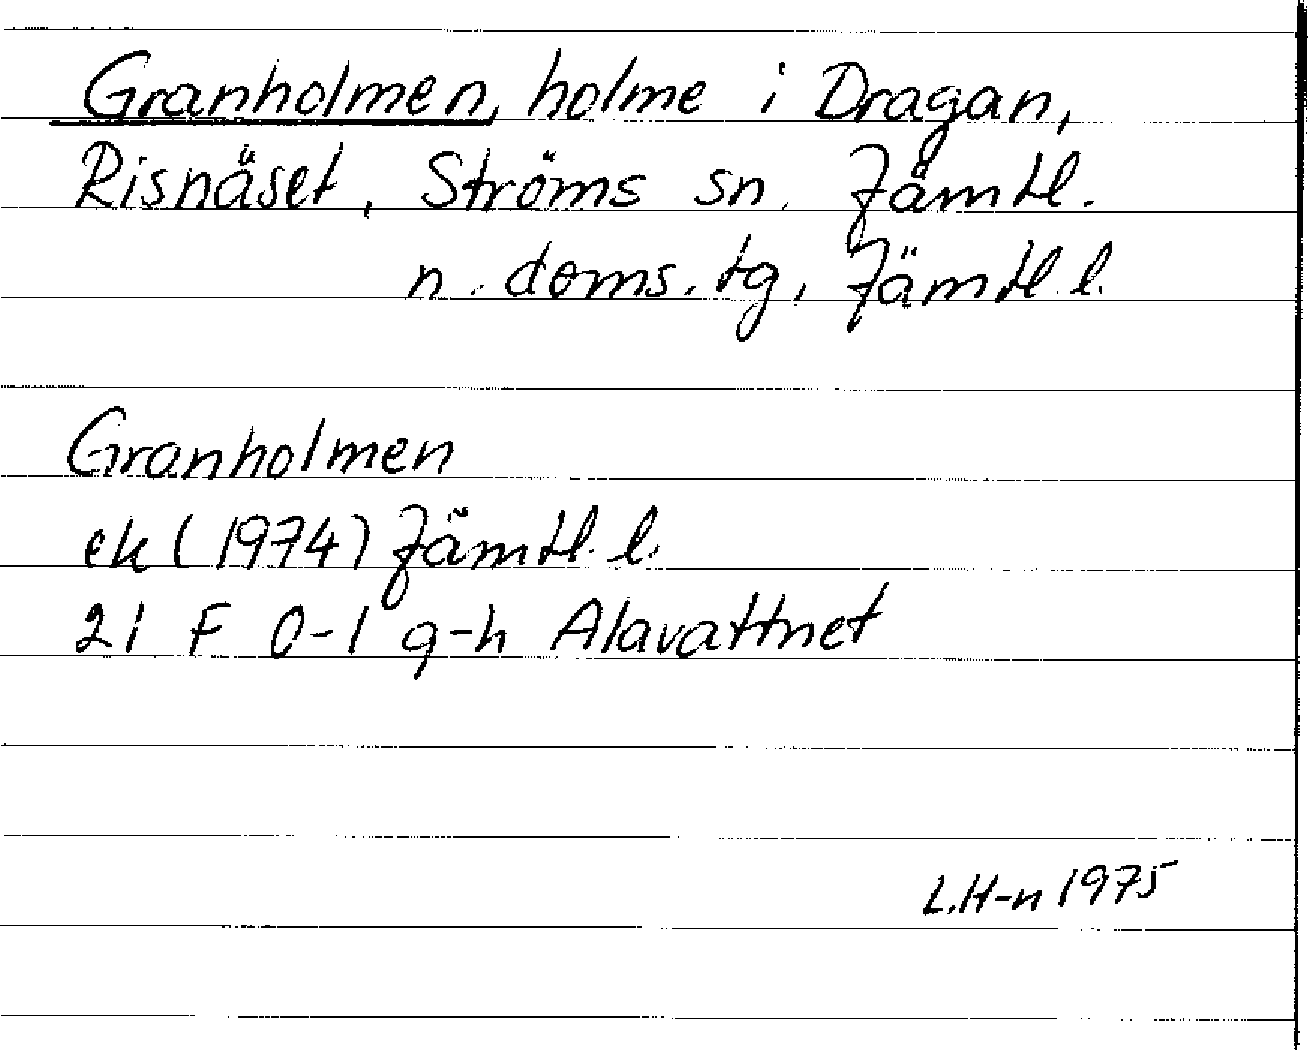 Granholmen, holme i Dragan,
Risnäset, Ströms sn. Jämtl.
n. doms. tg, Jämtl. l.
Granholmen
ek (1974) Jämtl. l.
21 F 0-1 g-h Alavattnet
L.H-n 1975